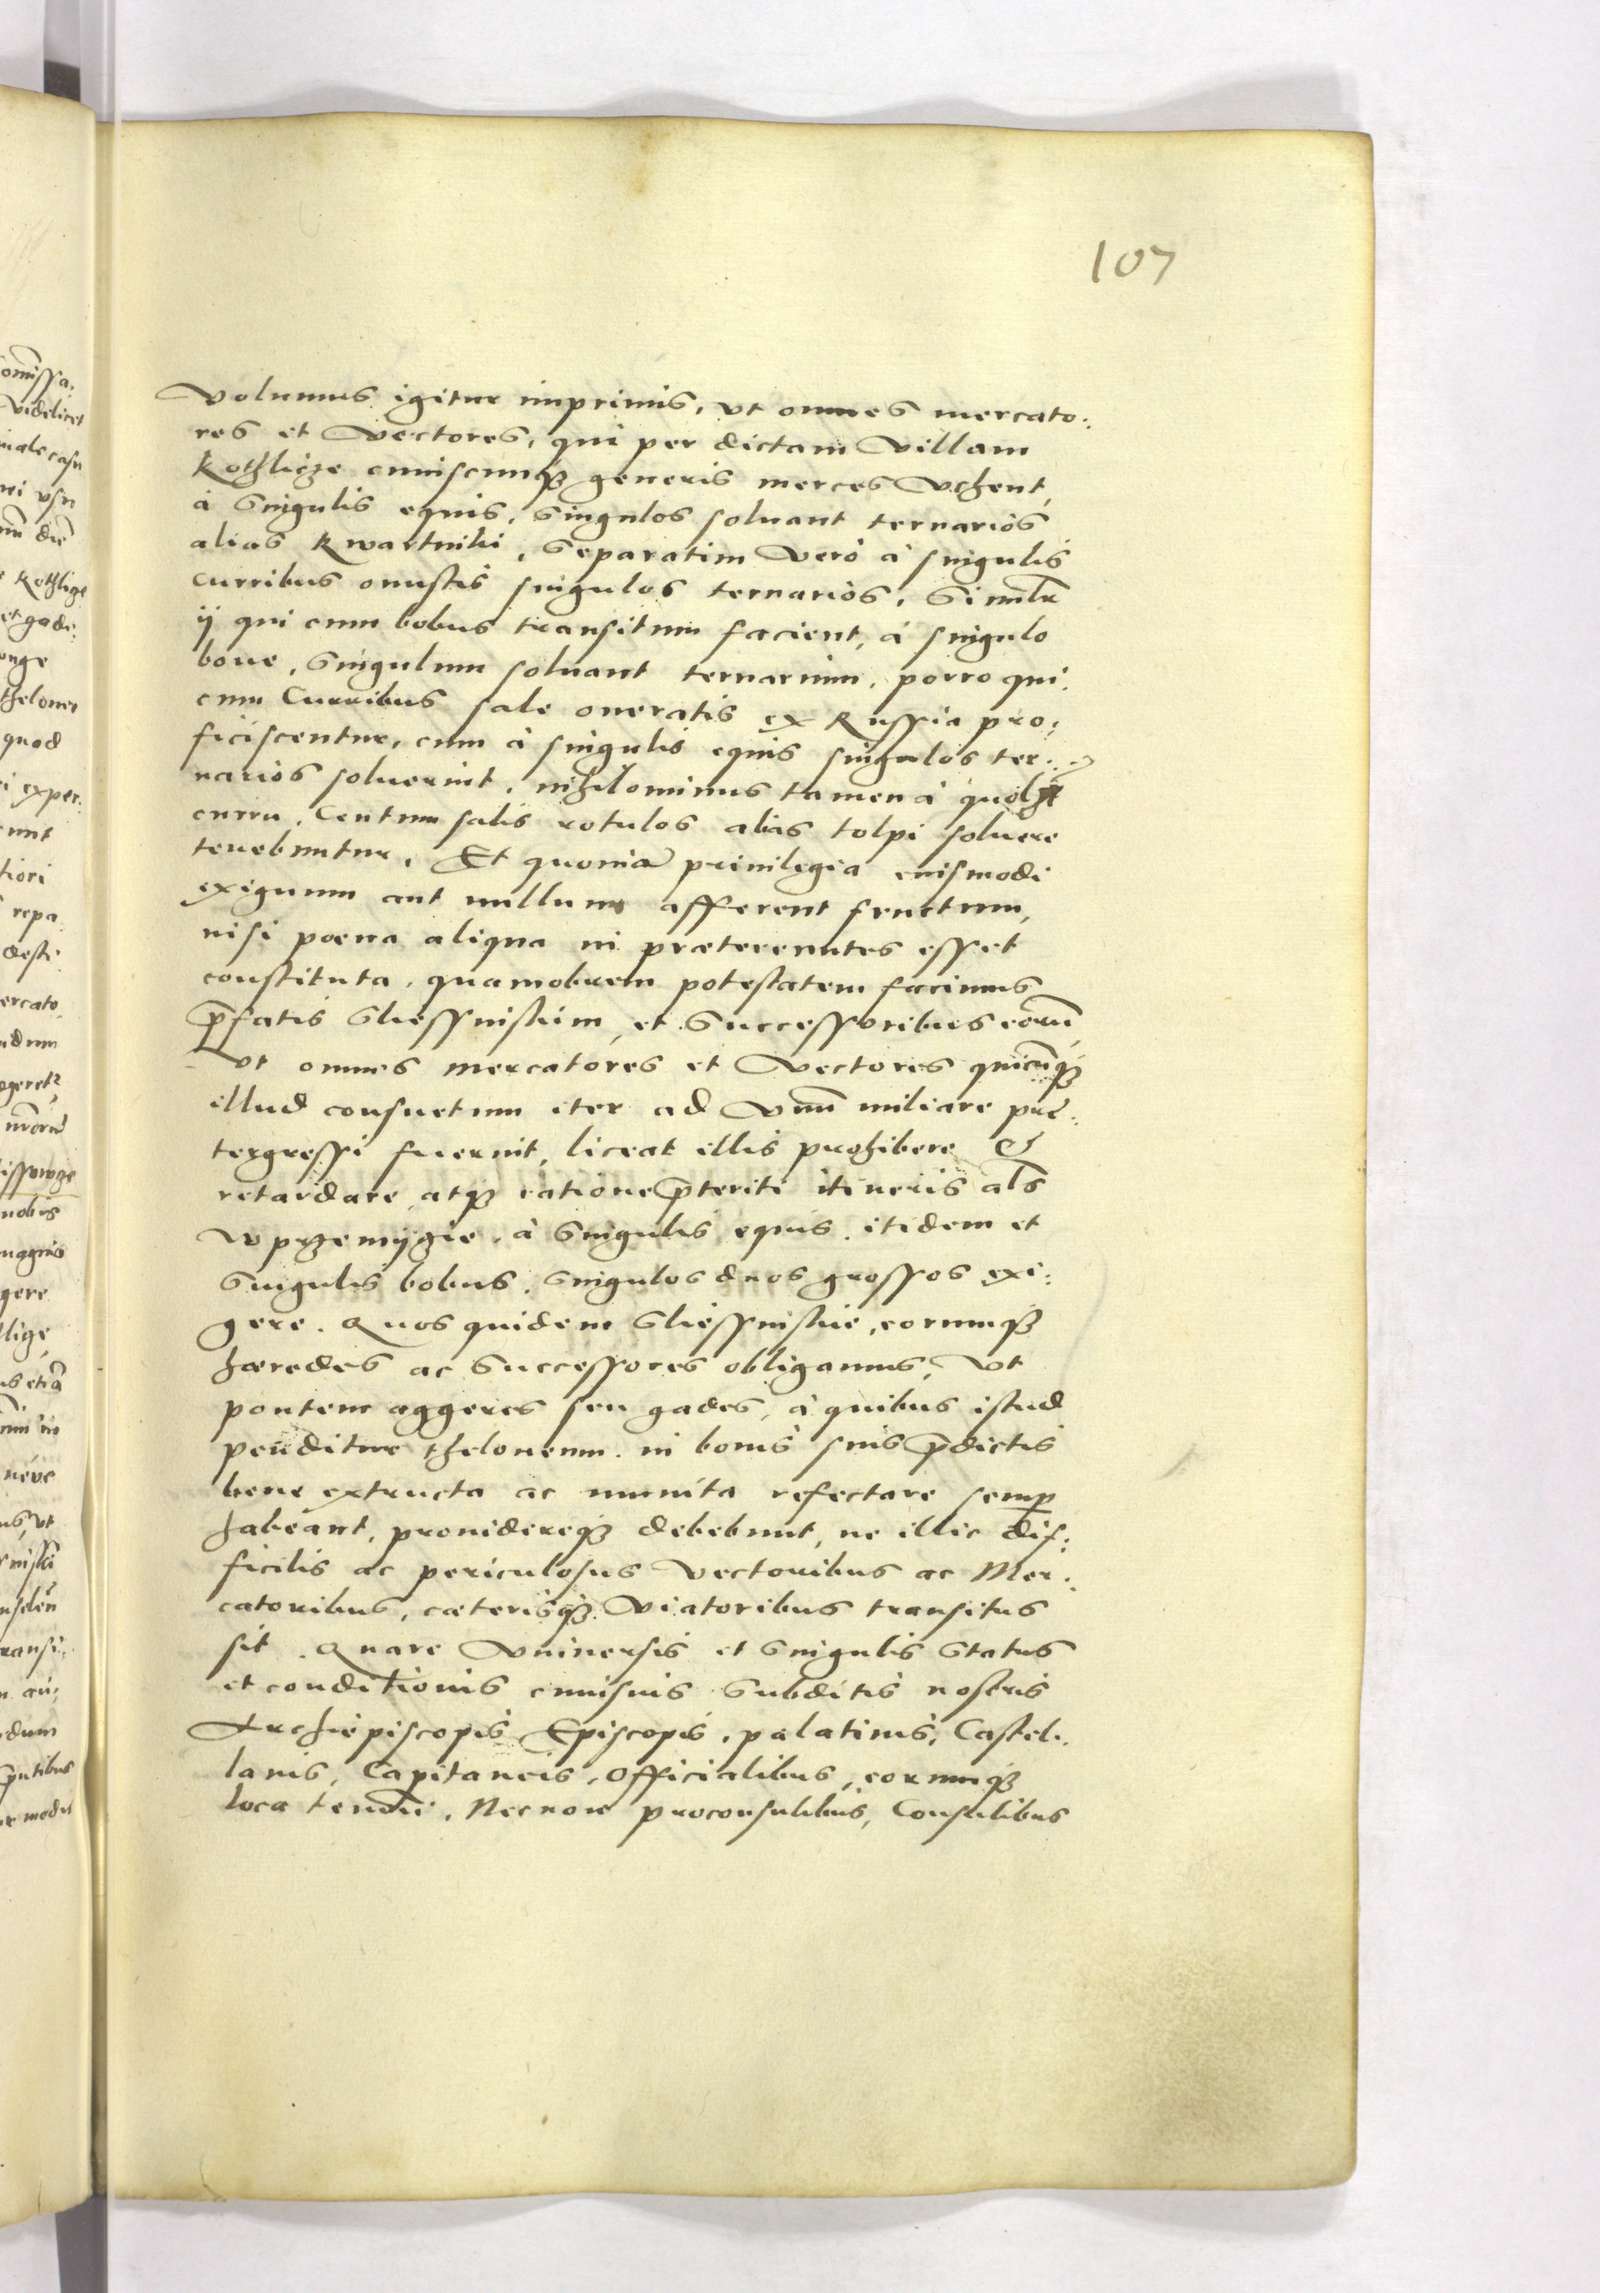 107
Volumus igitur imprimis, vt omnes mercato:
res et Vectores, qui per dictam Villam
Kothlicze cuiuscunqȝ generis merces Vehent,
à Singulis equis, Singulos soluant ternarios
alias Kwartniki, Separatim Verò à singulis
curribus onustis singulos ternarios, Similr
ij qui cum bobus transitum facient, à singulo
boue, Singulum soluant ternarium, porro qui
cum Curribus sale oneratis ex Russia pro:
ficiscentur, cum à singulis equis singulos ter:
narios soluerint, nihilominus tamen à quolȝt
curru, Centum salis rotulos alias tolpi soluere
tenebuntur, Et quoniã priuilegia eiusmodi
exiguum aut nullum afferent fructum,
nisi poena aliqua in praetereuntes esset
constituta, quamobrem potestatem facimus
p̃fatis Sliessinskiim, et Successoribus eorũ,
Vt omnes mercatores et Vectores quicũqȝ
illud consuetum iter ad Vnũ miliare prae:
tergressi fuerint, liceat illis prohibere &
retardare, atqȝ ratione p̃teriti itineris als
wprzemyzie, à Singulis equis, itidem et
Singulis bobus, Singulos duos grossos exi:
gere. Quos quidem Sliessinskie, eorumqȝ
haeredes ac Successores obligamus, Vt
pontem aggeres seu gades, à quibus istud
penditur theloneum, in bonis suis p̃dictis
bene extructa ac munita refectare semp
habeant, prouidereqȝ debebunt, ne illic dif:
ficilis ac periculosus Vectoribus ac Mer:
catoribus, caeterisqȝ Viatoribus transitus
sit. Quare Vniuersis et Singulis Status
et conditionis cuiusuis Subditis nostris
Archiepiscopis Episcopis, palatinis, Castel:
lanis, Capitaneis, Officialibus, eorumqȝ
loca tenen̄, Necnon proconsulibus, Consulibus